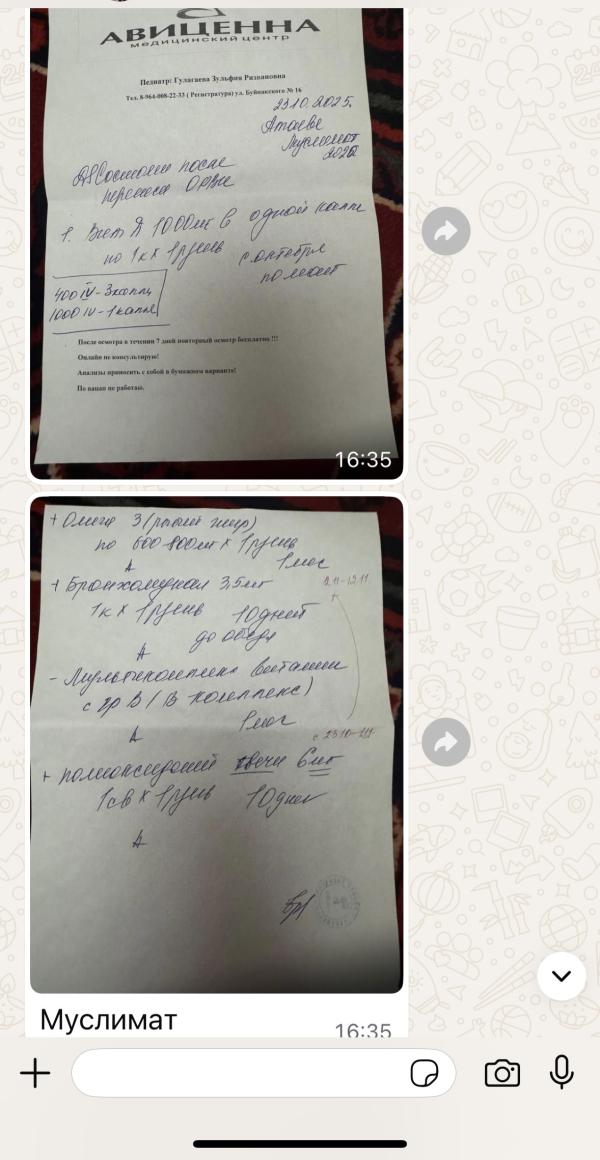 АВИЦЕННА
медицинский центр
Педиатр: Гулагаева Зульфия Ризвановна
Тел. 8-964-008-22-33 ( Регистратура) ул. Буйнакского № 16
23.10.2025.
Муслимат
2020
DS Состояние после
1. Вит Д 1000ме в одной капле
по 1к х 1р/день с октября
400 IU - 3 капли
1000 IU - 1 капля
После осмотра в течении 7 дней повторный осмотр бесплатно !!!
Онлайн не консультирую!
Анализы приносить с собой в бумажном варианте!
По вацап не работаю.
16:35
+ Омега 3 (рыбий жир)
по 600-800мг х 1р/день
1 мес
+ Бронхомунал 3,5мг
1к х 1р/день 10 дней
до обеда
- Мультикомплекс витамин
с гр В (В комплекс)
1 мес
+ полиоксидоний свечи 6мг
1св х 1р/день 10 дней
Муслимат
16:35